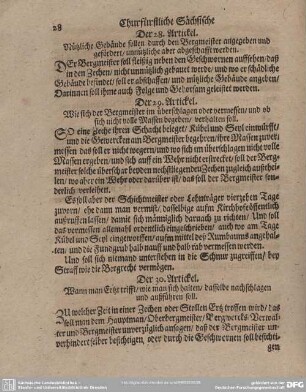 28 Churfürstliche Sächsische
Der 28. Artickel.
Nützliche Gebäude sollen durch den Bergmeister angegeben und
gefördert, unnützliche aber abgeschafft werden.
DEr Bergmeister soll fleißig neben den Geschwornen auffsehen, daß
in den Zechen, nicht unnützlich gebauet werde, und wo er schädliche
Gebäude befindet, soll er abschaffen, und nützliche Gebäude angeben,
Darinnen soll ihme auch Folge und Gehorsam geleistet werden.
Der 29. Artickel.
Wie sich der Bergmeister im überschlagen oder vermessen, und ob
sich nicht volle Massen begeben, verhalten soll.
SO eine Zeche ihren Schacht beleget, Kübel und Seyl einwürfft,
und die Gewercken am Bergmeister begehren, ihre Massen zuver-
messen, das soll er nicht wegern, und wo sich im überschlagen nicht volle
Massen ergeben, und sich auff ein Wehr nicht erstrecket, soll der Berg-
meister solche überschar beyden nechstliegenden Zechen zugleich
wo aber ein Wehr oder darüber ist, das soll der Bergmeister son-
derlich verleihen.
Es soll aber der Schichtmeister oder Lehnträger vierzehen Tage
zuvorn, ehe dann man vermist, dasselbige auffm Kirchhofe öffentlich
außruffen lassen, damit sich männiglich darnach zu richten, Und soll
das vermessen allemahl ordentlich eingeschrieben, auch wo am Tage
Kübel und Seyl eingeworffen, auffm mittel des Rundbaums angehal-
ten, und die Fundgrub halb nauff und halb rab vermessen werden.
Und soll sich niemand unterstehen in die Schnur zugreiffen, bey
Straff wie die Bergrecht vermögen.
Der 30. Artickel.
Wann man Ertzt trifft, wie man sich halten, dasselbe nachschlagen
und ausführen soll.
ZU welcher Zeit in einer Zechen oder Stollen Ertz troffen wird, das
soll man dem Hauptman, Oberbergmeister, Bergwercks-Verwal-
ter und Bergmeister unverzüglich ansagen, daß der Bergmeister un-
verhindert selber besichtigen, oder durch die Geschwornen soll besichti-
gen